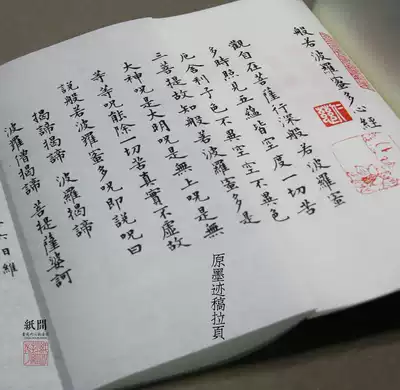 般若波羅蜜多心經
觀自在菩薩行深般若波羅蜜
多時照見五蘊皆空度一切苦
厄舍利子色不異空空不異色
三菩提故知般若波羅蜜多是
大神呪是大明呪是無上呪是無
等等呪能除一切苦真實不虛故
說般若波羅蜜多呪即說呪曰
揭諦揭諦 波羅揭諦
波羅僧揭諦 菩提薩婆訶
日維
原墨迹稿拉頁
紙間